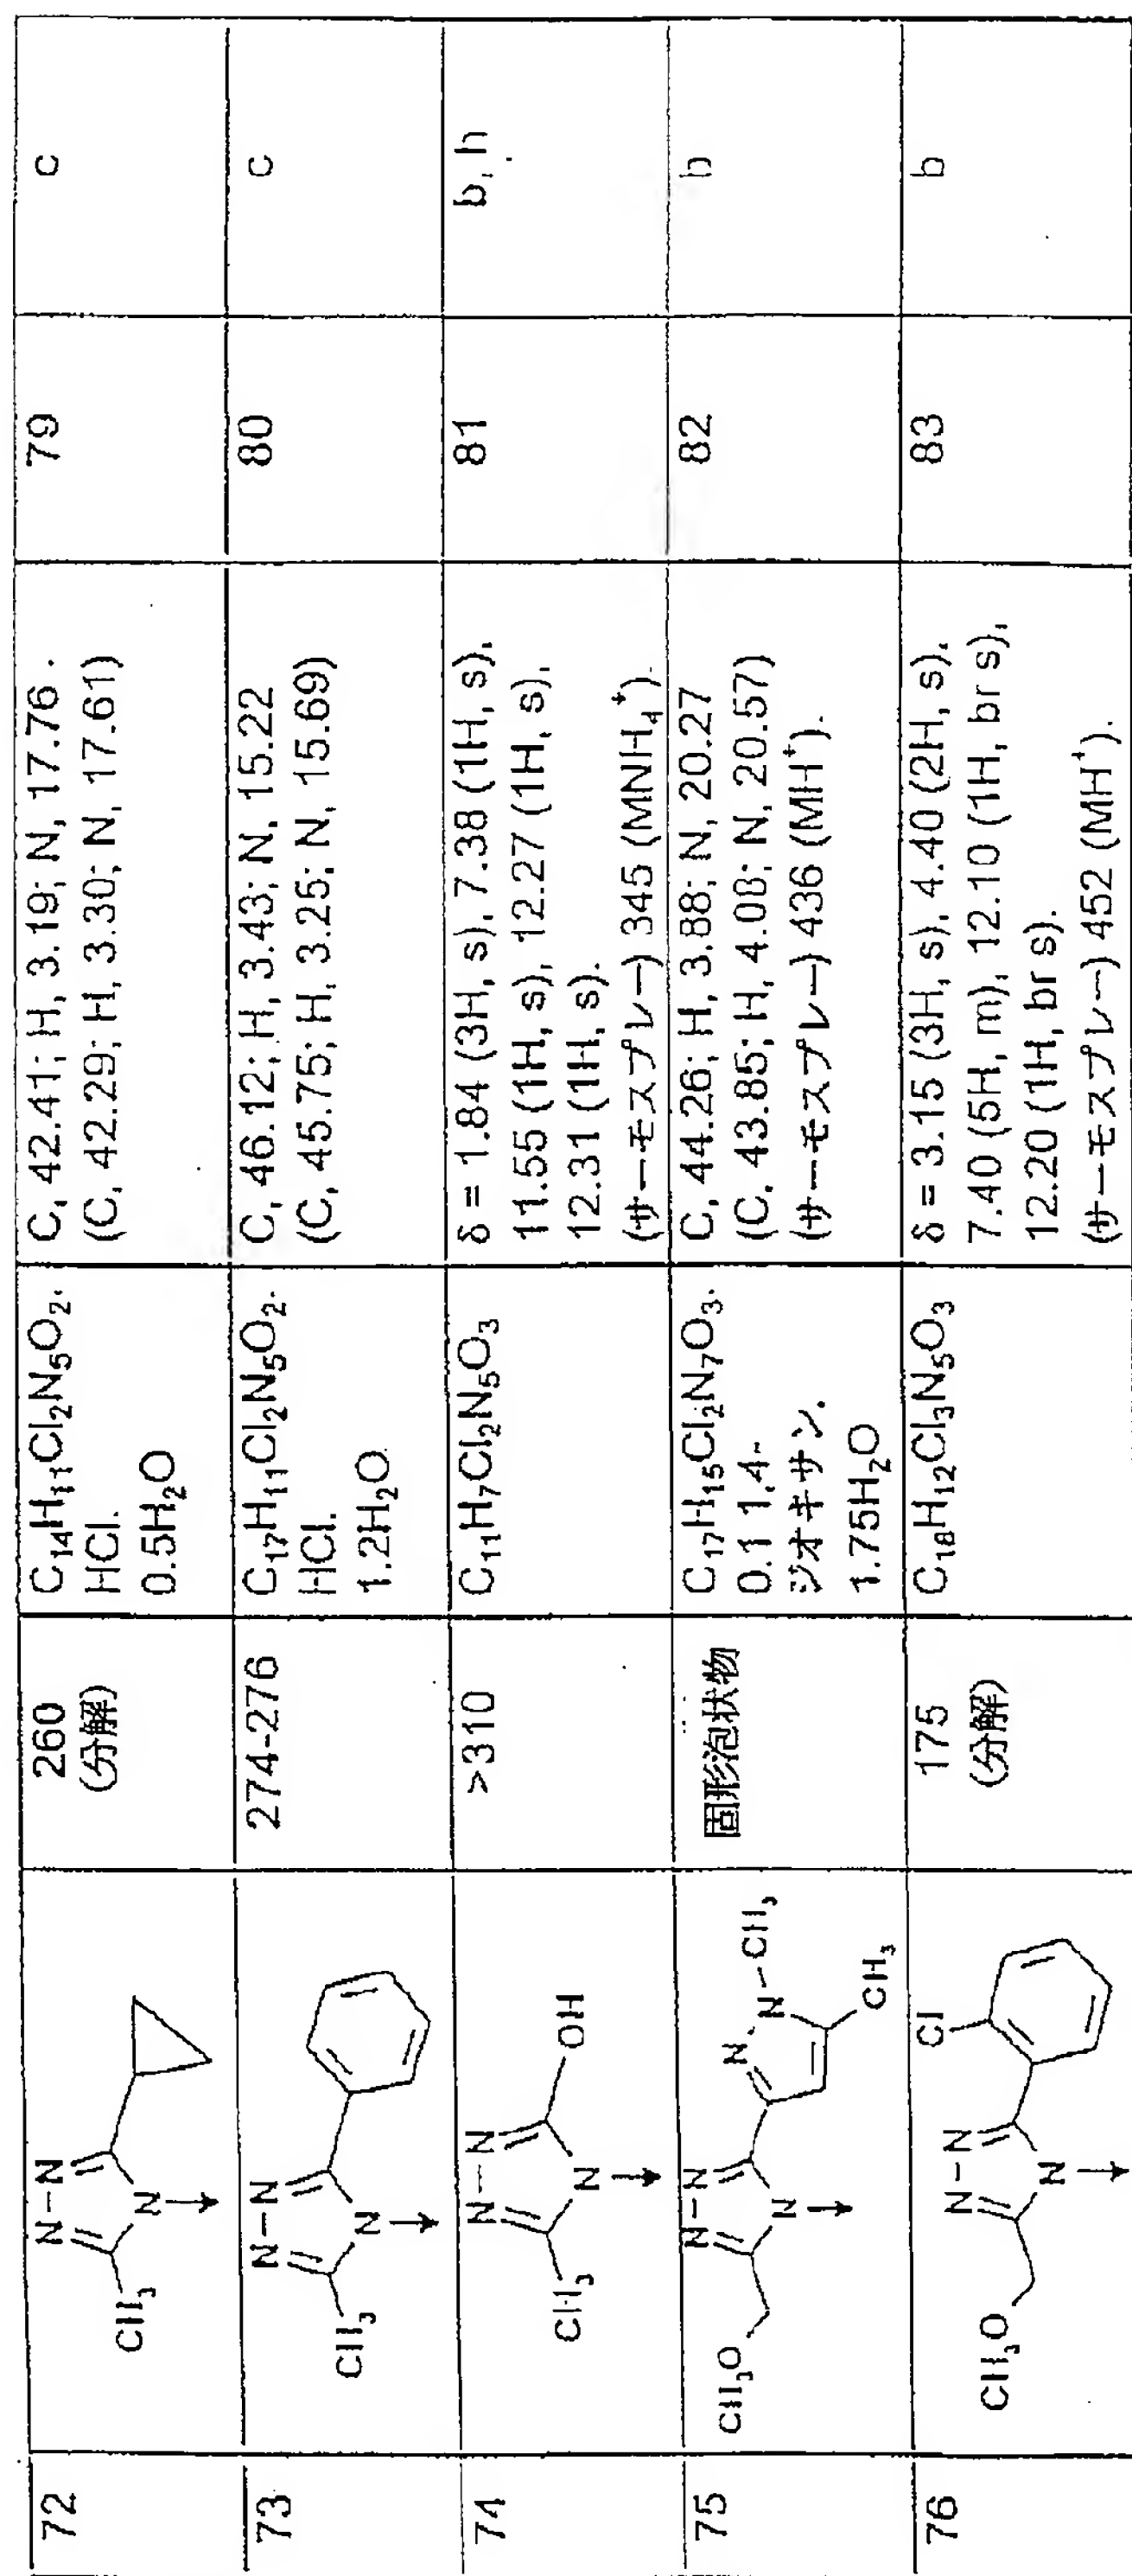 72
CH₃
N–N
N
260
(分解)
C₁₄H₁₁Cl₂N₅O₂.
HCl.
0.5H₂O
C, 42.41; H, 3.19; N, 17.76.
(C, 42.29; H, 3.30; N, 17.61)
79
c
73
CH₃
N–N
N
274-276
C₁₇H₁₁Cl₂N₅O₂.
HCl.
1.2H₂O
C, 46.12; H, 3.43; N, 15.22
(C, 45.75; H, 3.25; N, 15.69)
80
c
74
CH₃
N–N
N
OH
>310
C₁₁H₇Cl₂N₅O₃
δ = 1.84 (3H, s), 7.38 (1H, s),
11.55 (1H, s), 12.27 (1H, s),
12.31 (1H, s).
(サーモスプレー) 345 (MNH₄⁺).
81
b, h
75
CH₃O
N–N
N
N
N–CH₃
CH₃
固形泡状物
C₁₇H₁₅Cl₂N₇O₃.
0.1 1,4-
ジオキサン.
1.75H₂O
C, 44.26; H, 3.88; N, 20.27
(C, 43.85; H, 4.08; N, 20.57)
(サーモスプレー) 436 (MH⁺).
82
b
76
CH₃O
N–N
N
Cl
175
(分解)
C₁₈H₁₂Cl₃N₅O₃
δ = 3.15 (3H, s), 4.40 (2H, s),
7.40 (5H, m), 12.10 (1H, br s),
12.20 (1H, br s).
(サーモスプレー) 452 (MH⁺).
83
b